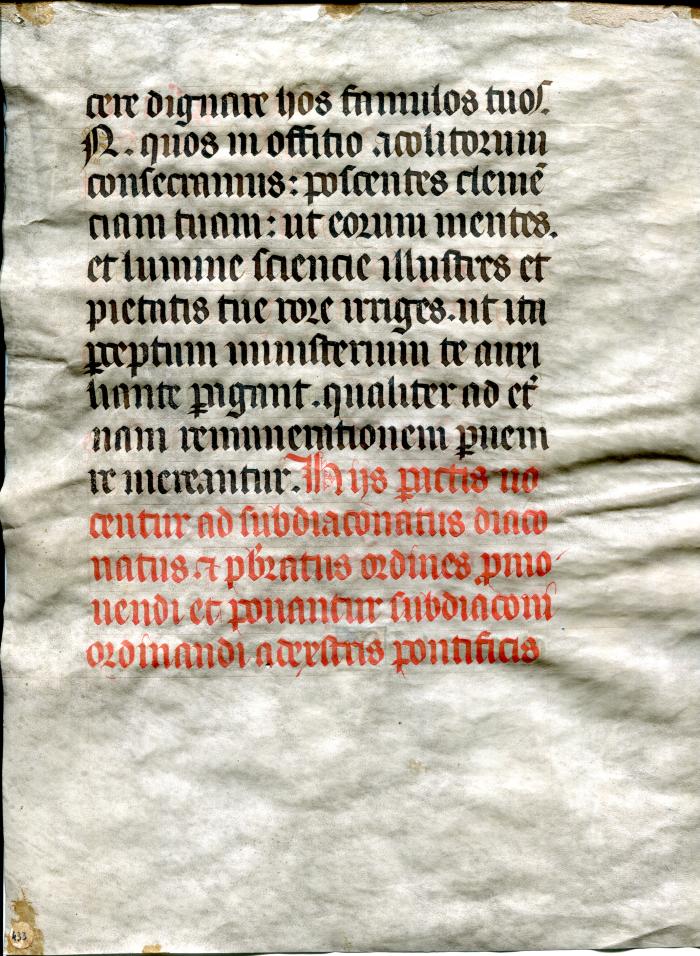 cere dignare hos famulos tuos.
N. quos in offitio acolitorum
consecramus: poscentes clemē
ciam tuam: ut eorum mentes.
et lumine sciencie illustres et
pietatis tue rore irriges. ut ita
ꝑceptum ministerium te auxi
liante ꝑagant. qualiter ad et̉
nam remunerationem ꝑuem
re mereantur. Hijs ꝑactis uo
centur ad subdiaconatus diaco
natus ⁊ pb̄ratus ordines ꝓmo
uendi et ponantur subdiaconi
ordinandi adextris pontificis
433